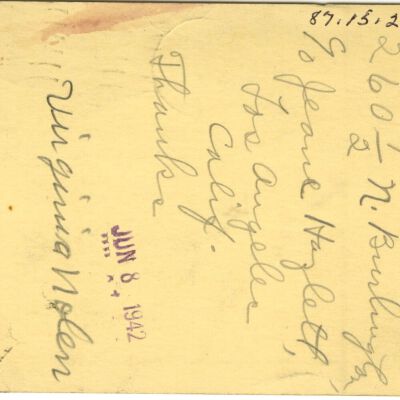 87.15.2
260 1/2 N. Burlington
% Jeane Hazlett,
Los Angeles
Calif.
Thanks
Virginia Nolen
JUN 8 1942